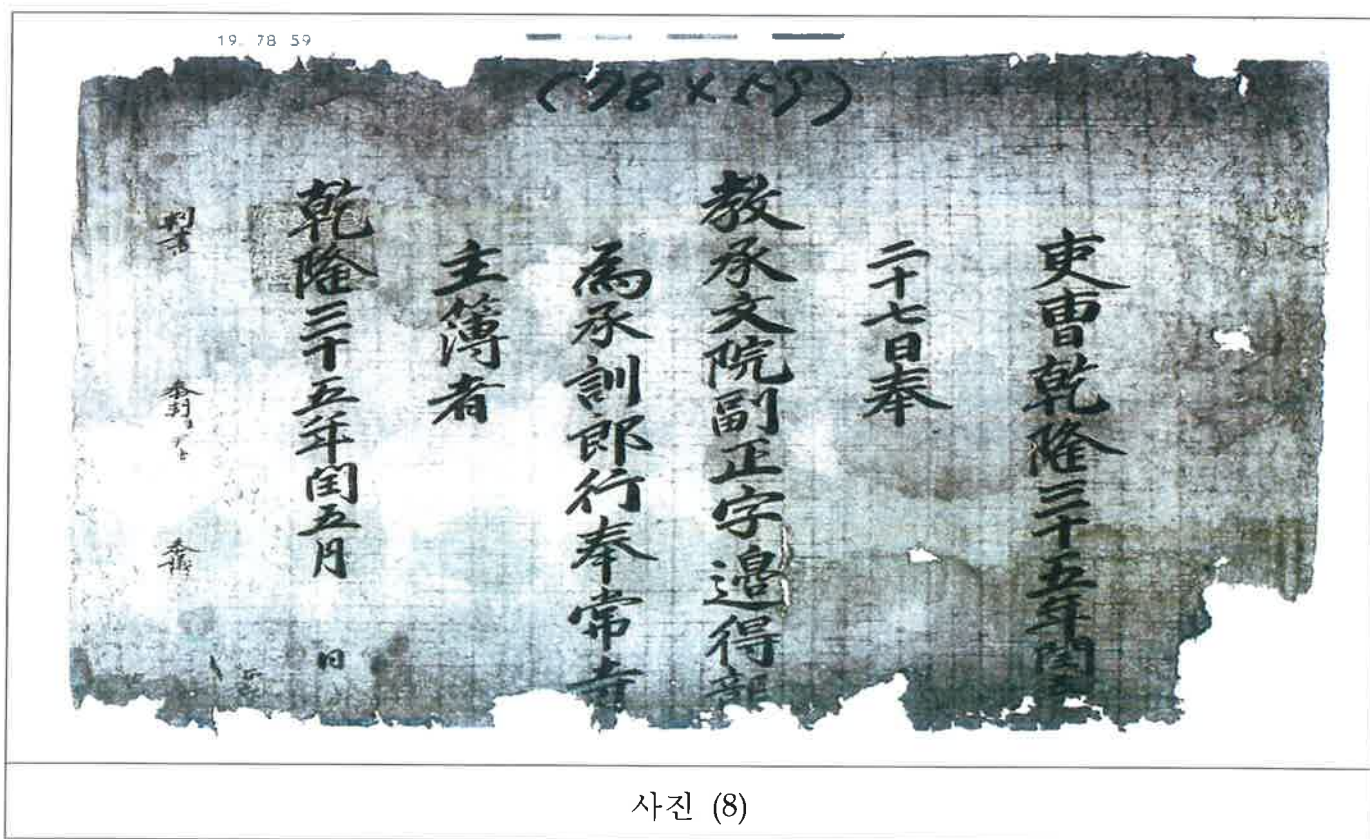 19. 78 59
(78 x 59)
吏曹乾隆三十五年閏
二十七日奉
教承文院副正字邉得
為承訓郎行奉常寺
主簿者
乾隆三十五年閏五月 日
判書 參判 參議
사진 (8)